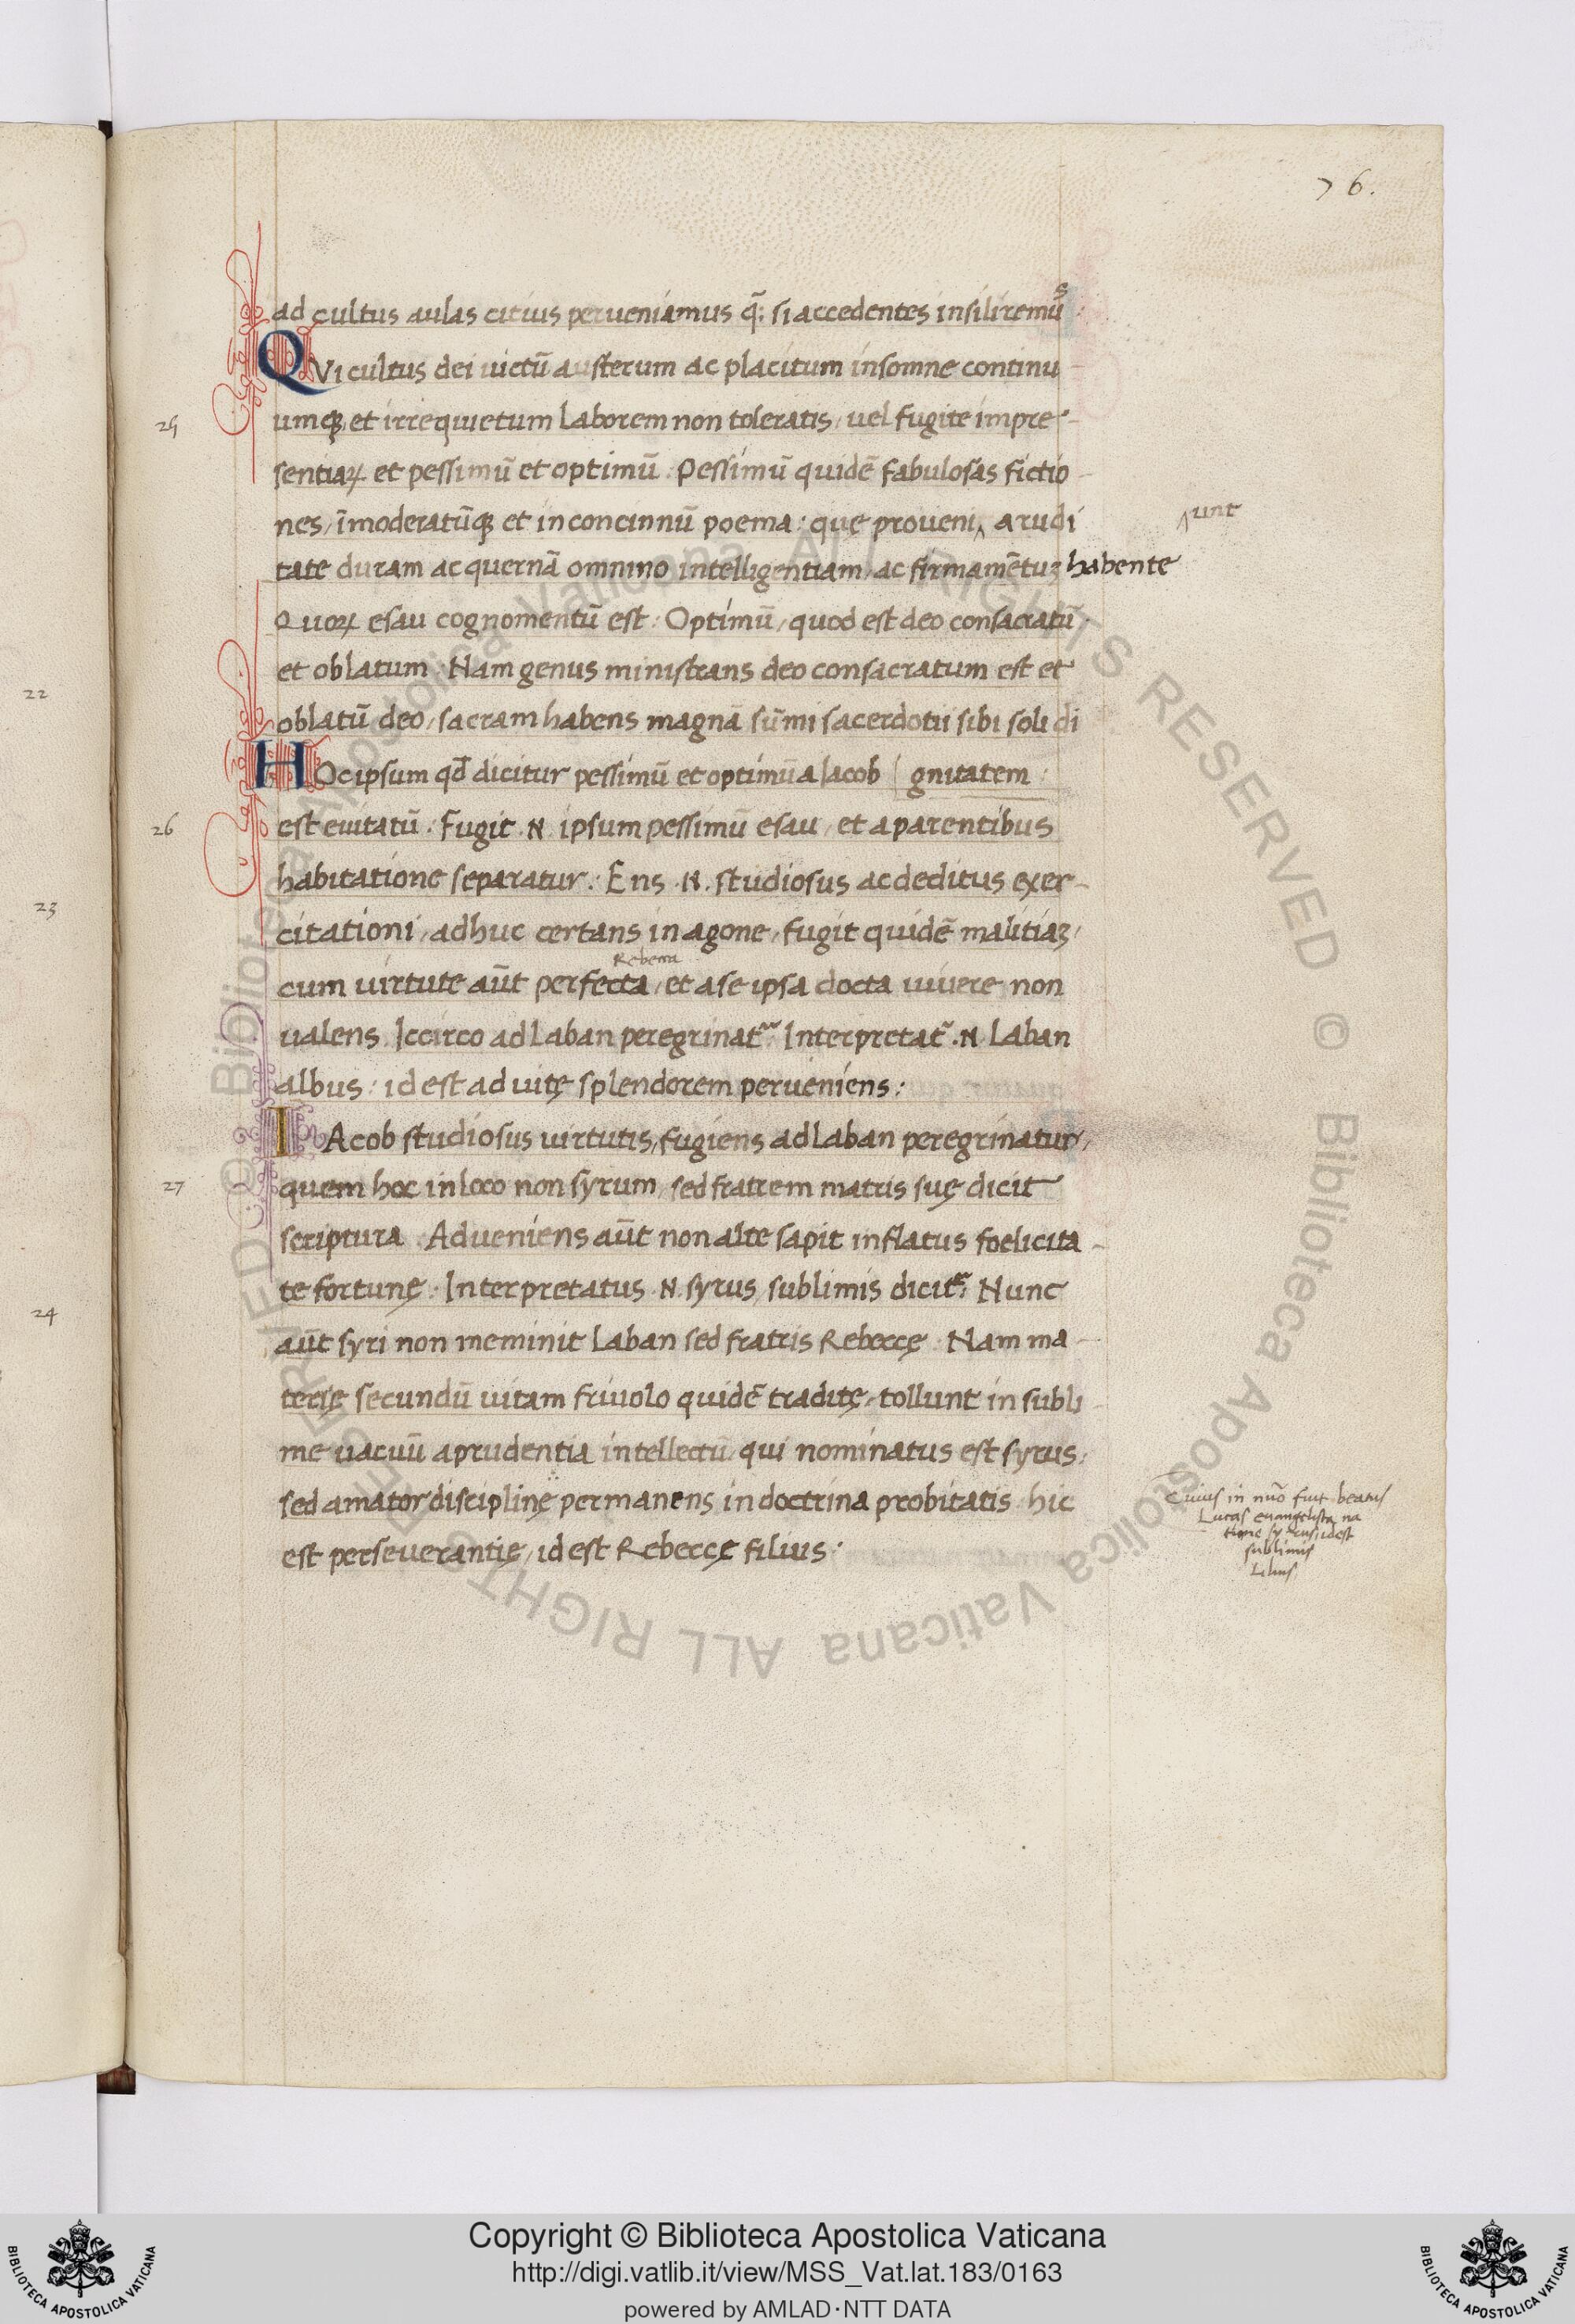 76.
ad cultus aulas citius perueniamus q̃: si accedentes insiliremus
QVi cultus dei uictũ austerum ac placitum insomne continu-
umq; et irrequietum laborem non toleratis, uel fugite impre-
sentiaꝝ et pessimũ et optimũ. Pessimũ quidẽ fabulosas fictio-
nes, ĩmoderatũq; et inconcinnũ poema: quę proueni‸ a rudi
‸unt
tate duram ac quernã omnino intelligentiam, ac firmamẽtuꝫ habente
Quoꝝ esau cognomentũ est. Optimũ, quod est deo consacratũ
et oblatum. Nam genus ministrans deo consacratum est et
oblatũ deo, sacram habens magnã sũmi sacerdotii sibi soli di
HOc ipsum qd̃ dicitur pessimũ et optimũ a Iacob | gnitatem:
est euitatũ. Fugit .N. ipsum pessimũ esau, et a parentibus
habitatione separatur. Ens .N. studiosus ac deditus exer-
citationi, adhuc certans in agone, fugit quidẽ malitiaꝫ,
Rebecca
cum uirtute aũt perfecta, et a se ipsa docta uiuere non
ualens. Iccirco ad Laban peregrinat̃. Interpretat̃ .N. Laban
albus: id est ad uitę splendorem perueniens:
IAcob studiosus uirtutis, fugiens ad Laban peregrinatur,
quem hoc in loco non syrum, sed fratrem matris suę dicit
scriptura. Adueniens aũt non alte sapit inflatus foelicita-
te fortunę. Interpretatus .N. syrus, sublimis dicit̃: Nunc
aũt syri non meminit Laban sed fratris Rebeccę. Nam ma-
terię secundũ uitam friuolo quidẽ traditę, tollunt in subli-
me uacuũ a prudentia intellectũ, qui nominatus est syrus:
sed amator disciplinę permanens in doctrina probitatis hic
est perseuerantię, id est Rebeccę filius:
Cuius in nũo fuit beatus
Lucas euangelista na
tione syrus, idest
sublimis
25
26
27
22
23
24
Copyright © Biblioteca Apostolica Vaticana
http://digi.vatlib.it/view/MSS_Vat.lat.183/0163
powered by AMLAD·NTT DATA
BIBLIOTECA APOSTOLICA VATICANA
BIBLIOTECA APOSTOLICA VATICANA
© Biblioteca Apostolica Vaticana ALL RIGHTS RESERVED
© Biblioteca Apostolica Vaticana ALL RIGHTS RESERVED